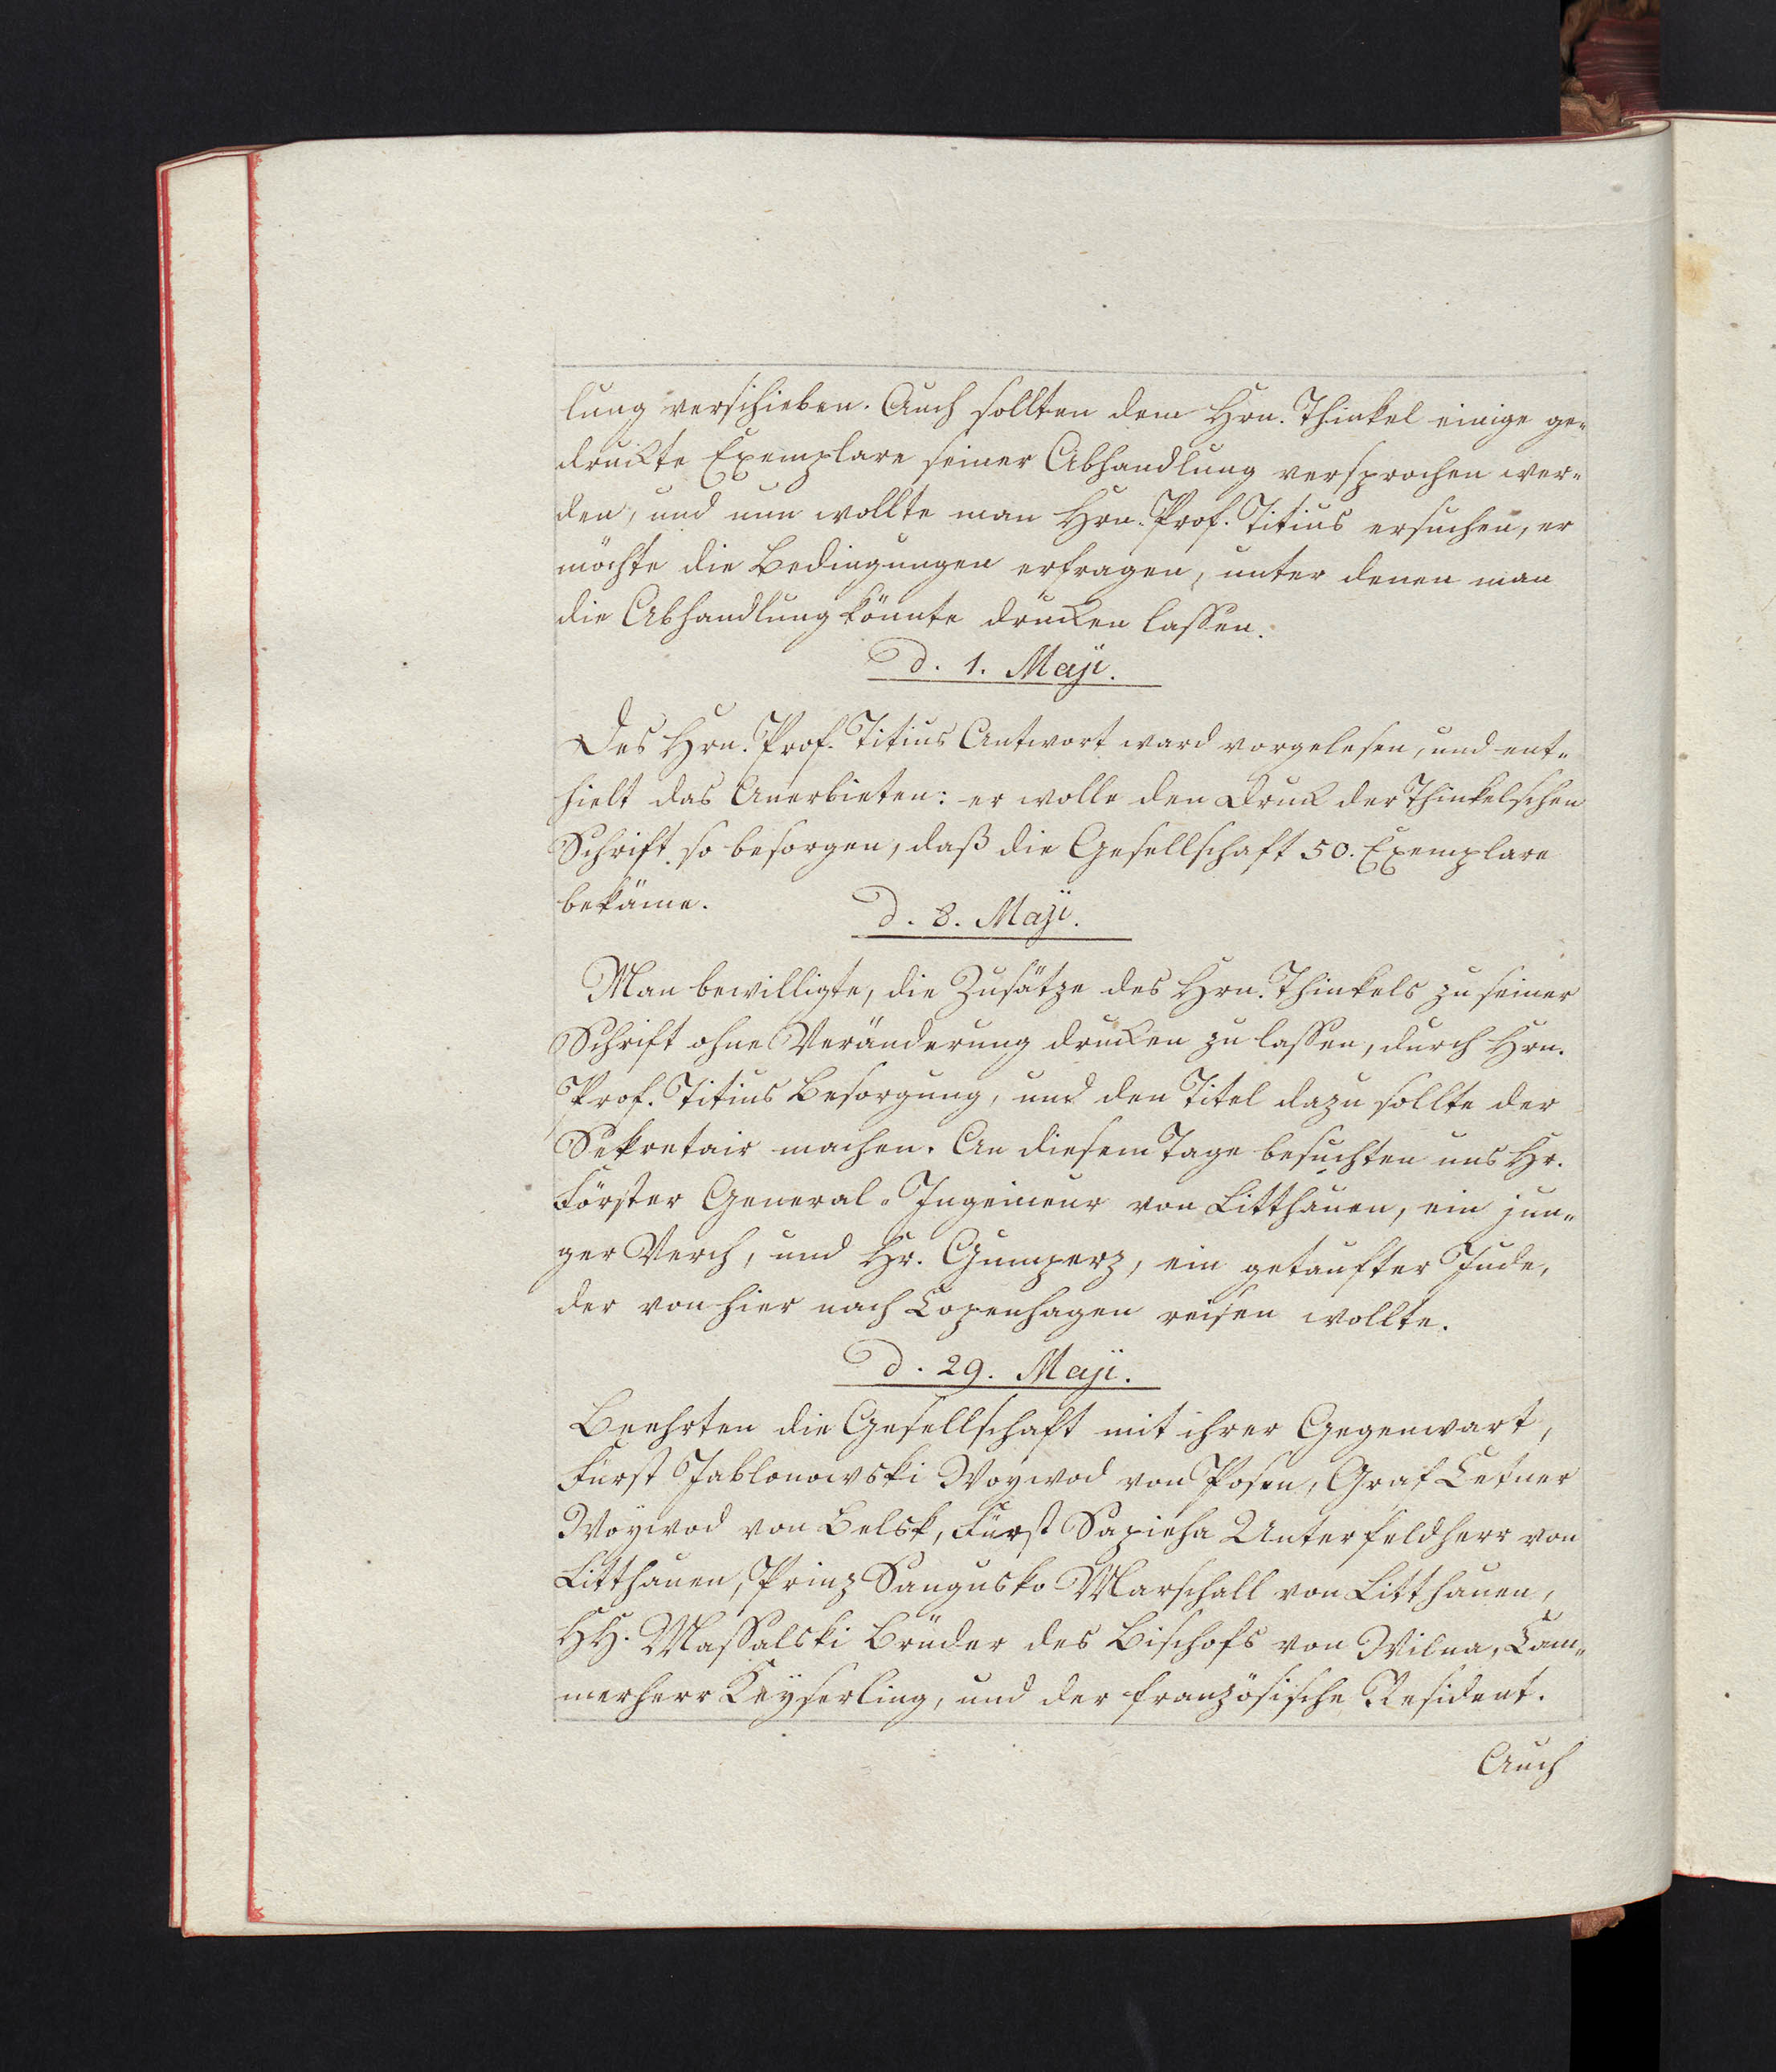 lung verschieben. Auch sollten dem Hrn. Thinkel einige ge-
druckte Exemplare seiner Abhandlung versprochen wer-
den, und nun wollte man Hrn. Prof. Titius ersuchen, er
möchte die Bedingungen erfragen, unter denen man
die Abhandlung könnte drucken lassen.
d. 1. Maji.
Des Hrn. Prof. Titius Antwort ward vorgelesen, und ent-
hielt das Anerbieten: er wolle den Druck der Thinkelschen
Schrift so besorgen, daß die Gesellschaft 50. Exemplare
bekäme.
d. 8. Maji.
Man bewilligte, die Zusätze des Hrn. Thinkels zu seiner
Schrift ohne Veränderung drucken zu lassen, durch Hrn.
Prof. Titius Besorgung, und den Titel dazu sollte der
Sekretair machen. An diesem Tage besuchten uns Hr.
Förster General-Ingeineur von Litthauen, ein jun-
ger Verch, und Hr. Gumperz, ein getaufter Jude,
der von hier nach Copenhagen reisen wollte.
d. 29. Maji.
Beehrten die Gesellschaft mit ihrer Gegenwart,
Fürst Jablonowski Woywod von Posen, Graf Cetner
Woywod von Belsk, Fürst Sapieha Unterfeldherr von
Litthauen, Prinz Sangusko Marschall von Litthauen,
HH. Massalski Brüder des Bischofs von Wilna, Cam-
merherr Keyserling, und der französische Resident.
Auch